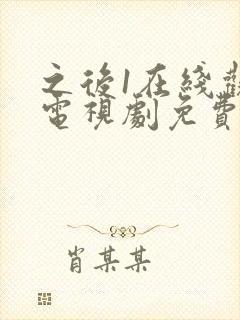 之後1在綫
電視劇免費
肖某某